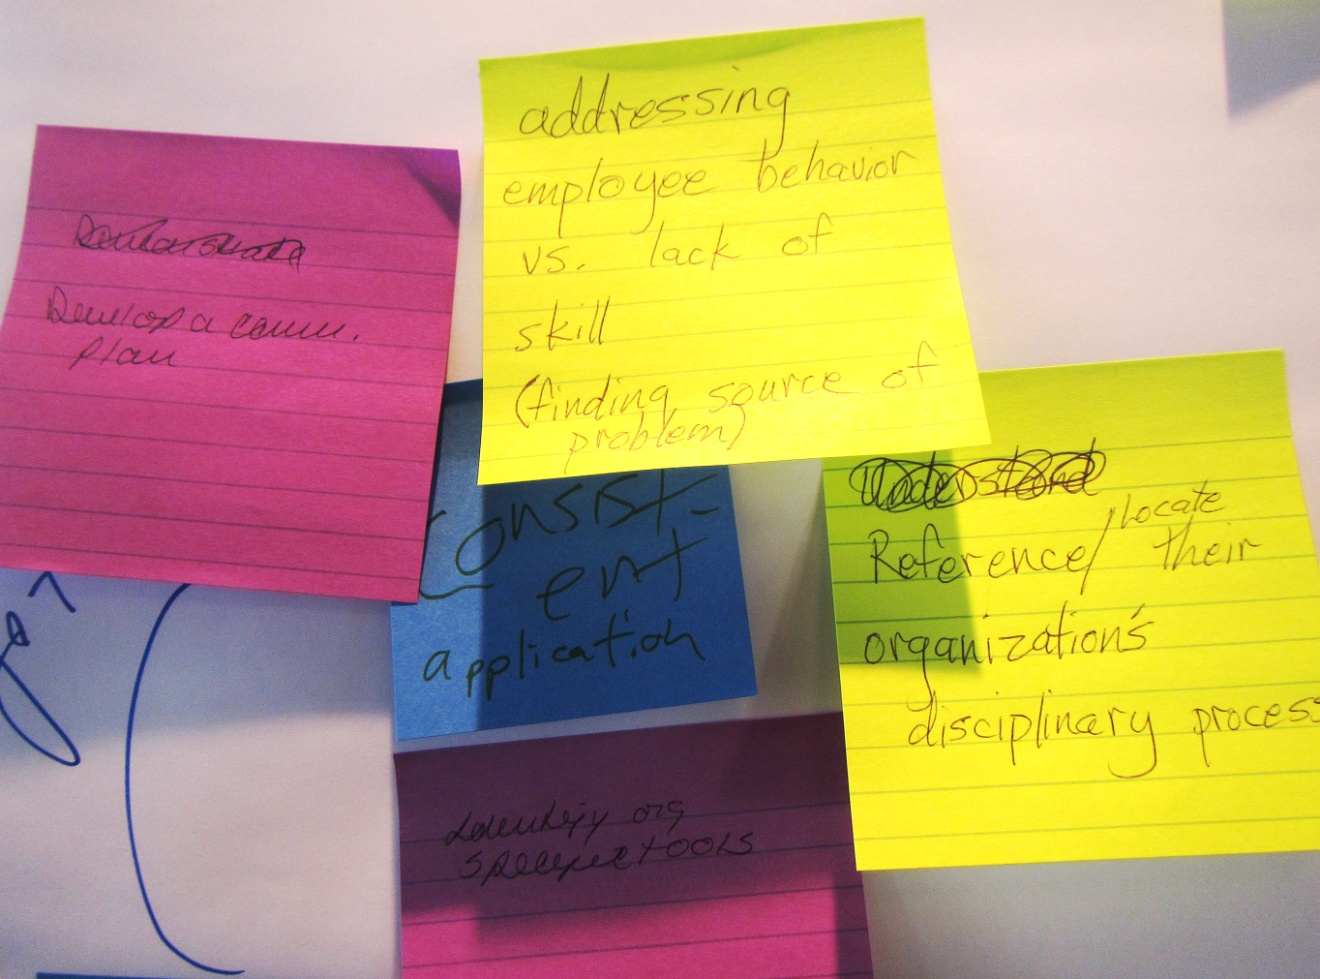 Develop a comm.
plan
addressing
employee behavior
vs. lack of
skill
(finding source of
problem)
Consist-
ent
application
Understand
Reference/Locate their
organization's
disciplinary process
Identify org
specific tools